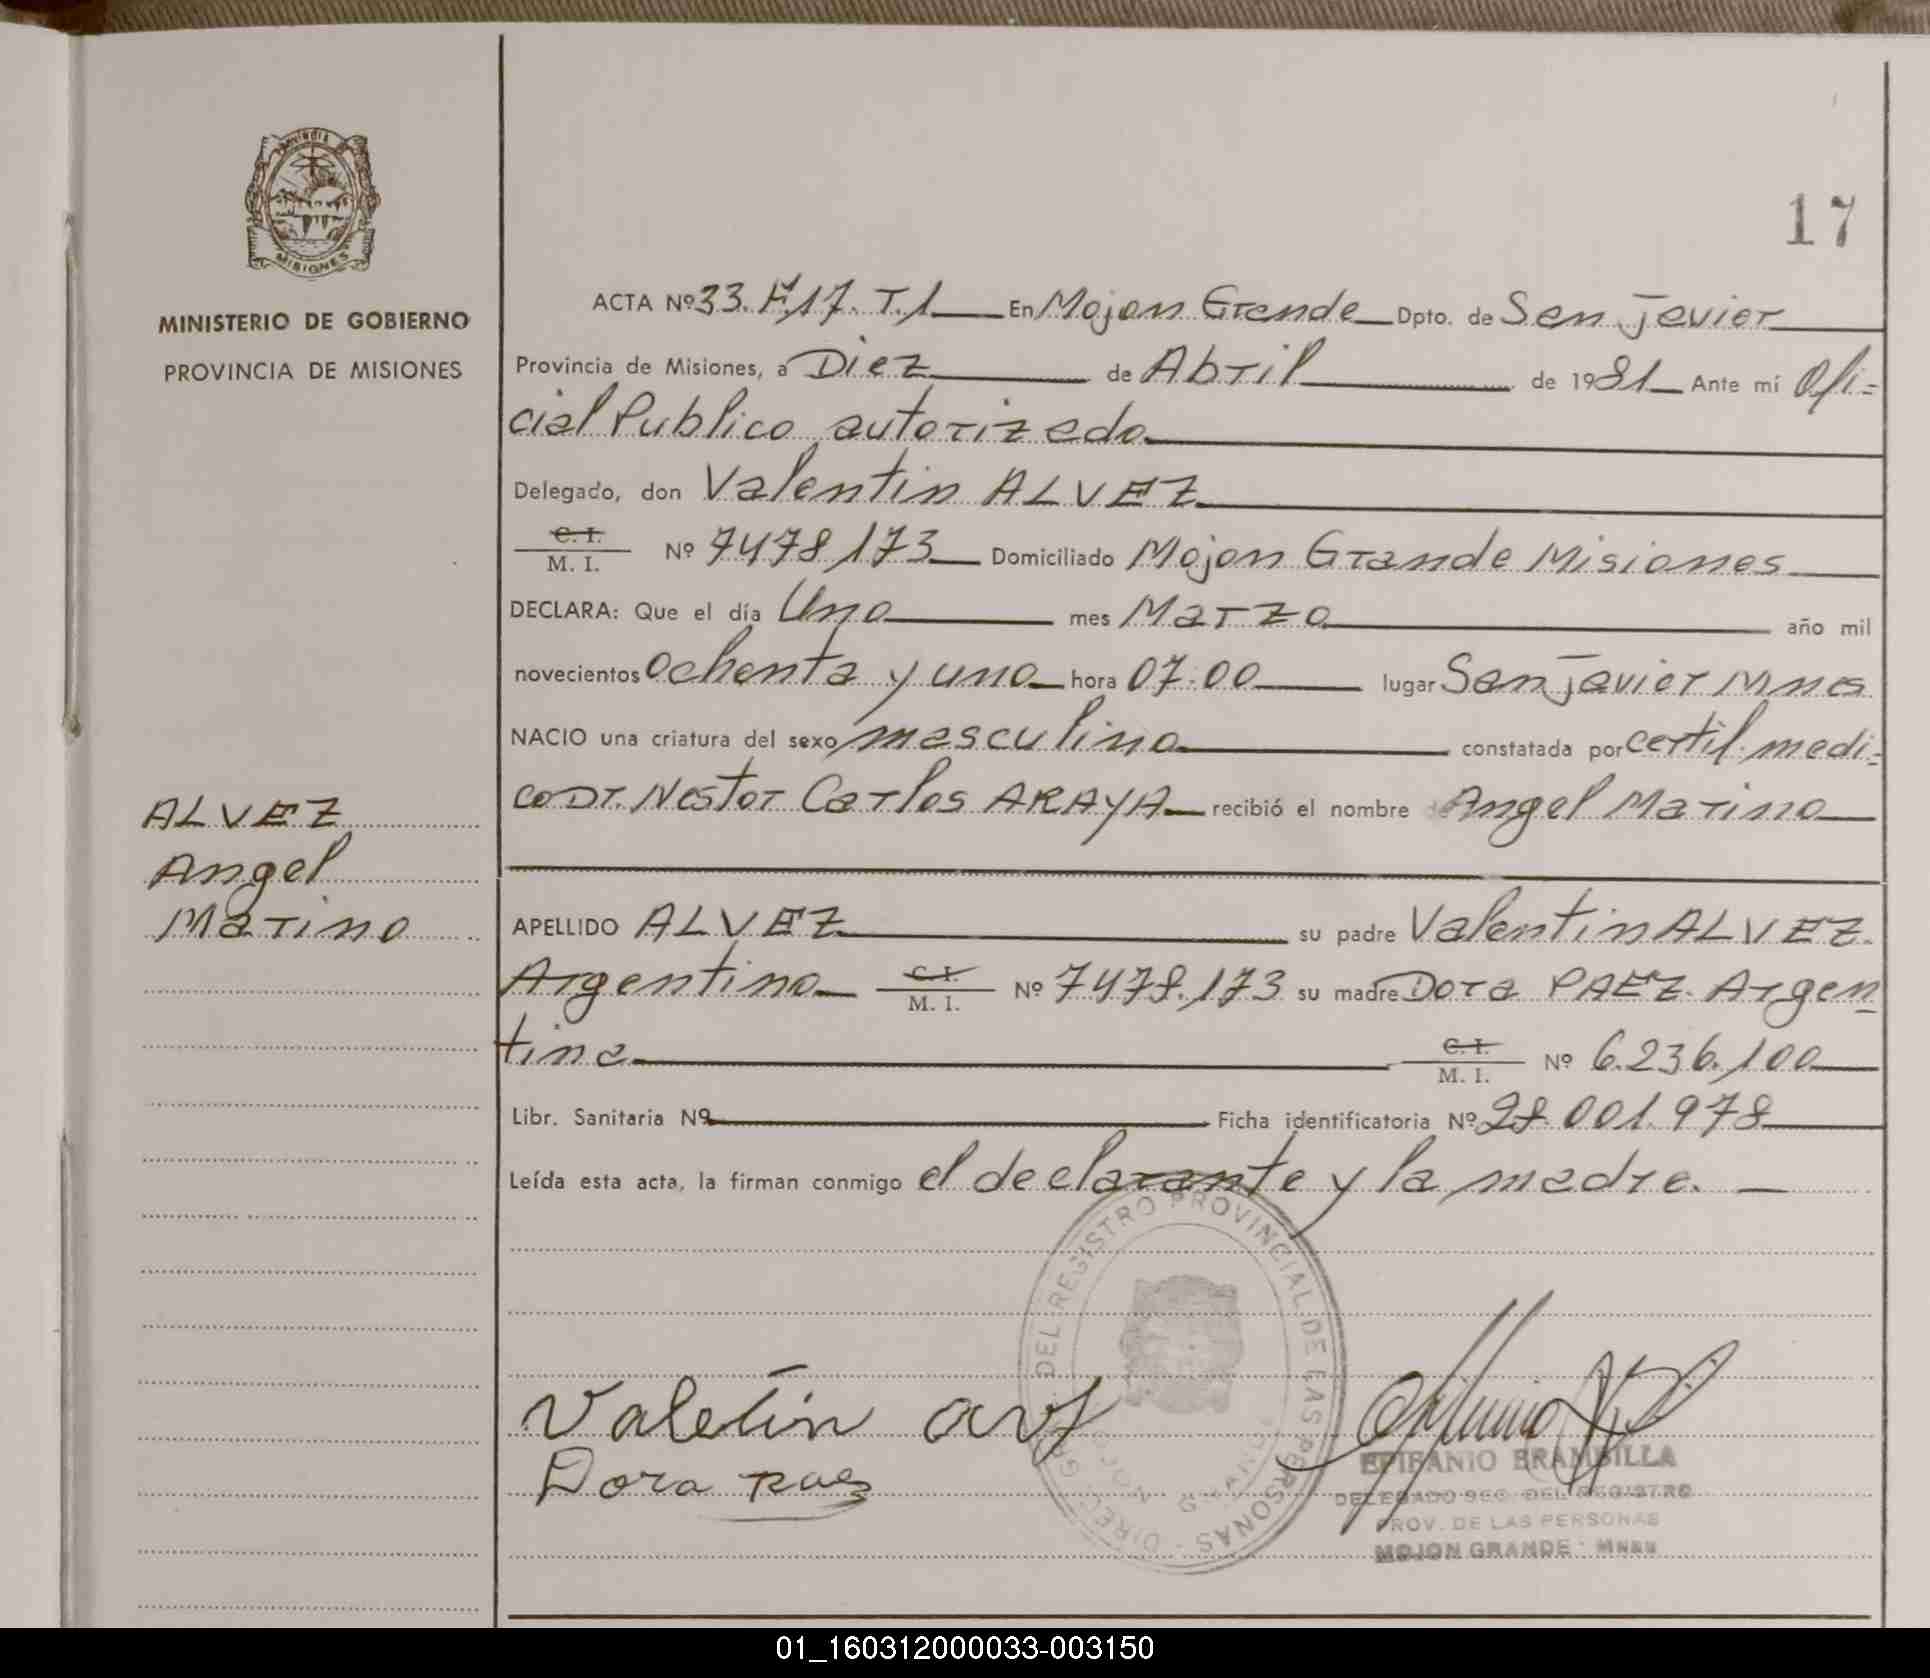 PROVINCIA
MISIONES
MINISTERIO DE GOBIERNO
PROVINCIA DE MISIONES
17
ACTA Nº 33. F.17. T.1 En Mojon Grande Dpto. de San Javier
Provincia de Misiones, a Diez de Abril de 1981 Ante mí Ofi=
cial Publico autorizado
Delegado, don Valentin ALVEZ
C. I.
M. I. Nº 7478173 Domiciliado Mojon Grande Misiones
DECLARA: Que el día Uno mes Marzo año mil
novecientos ochenta y uno hora 07:00 lugar San Javier Mnes
NACIO una criatura del sexo masculino constatada por certif. medi=
co Dr. Nestor Carlos ARAYA recibió el nombre de Angel Marino
ALVEZ
Angel
Marino
APELLIDO ALVEZ su padre Valentin ALVEZ.
Argentino C. I.
M. I. Nº 7478.173 su madre Dora PAEZ. Argen=
tina C. I.
M. I. Nº 6.236.100
Libr. Sanitaria Nº Ficha identificatoria Nº 28.001.978
Leída esta acta, la firman conmigo el declarante y la madre.
DIREC. GRAL. DEL REGISTRO PROVINCIAL DE LAS PERSONAS
MOJON GRANDE
Valetin
Dora paez
EPIFANIO BRAMBILLA
DELEGADO SEC. DEL REGISTRO
PROV. DE LAS PERSONAS
MOJON GRANDE - Mnes
01_160312000033-003150